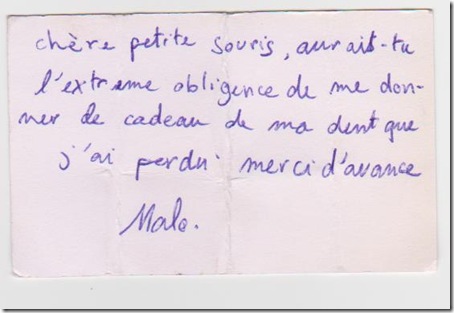 chère petite souris, aurait-tu
l'extreme obligence de me don-
ner le cadeau de ma dent que
j'ai perdu merci d'avance
Malo.